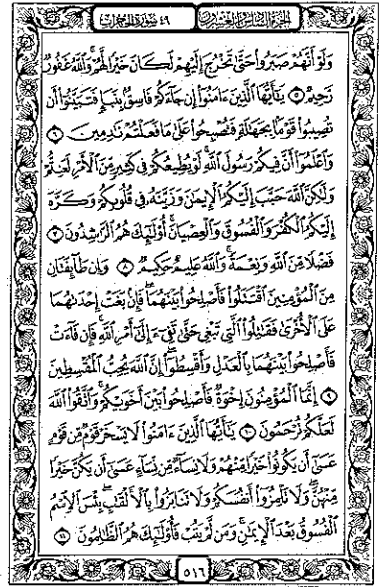 الجزء السادس والعشرون ٤٩ سورة الحجرات
وَلَوْ أَنَّهُمْ صَبَرُوا۟ حَتَّىٰ تَخْرُجَ إِلَيْهِمْ لَكَانَ خَيْرًا لَّهُمْ ۚ وَٱللَّهُ غَفُورٌ
رَّحِيمٌ ٥ يَـٰٓأَيُّهَا ٱلَّذِينَ ءَامَنُوٓا۟ إِن جَآءَكُمْ فَاسِقٌۢ بِنَبَإٍ فَتَبَيَّنُوٓا۟ أَن
تُصِيبُوا۟ قَوْمًۢا بِجَهَـٰلَةٍ فَتُصْبِحُوا۟ عَلَىٰ مَا فَعَلْتُمْ نَـٰدِمِينَ ٦
وَٱعْلَمُوٓا۟ أَنَّ فِيكُمْ رَسُولَ ٱللَّهِ ۚ لَوْ يُطِيعُكُمْ فِى كَثِيرٍ مِّنَ ٱلْأَمْرِ لَعَنِتُّمْ
وَلَـٰكِنَّ ٱللَّهَ حَبَّبَ إِلَيْكُمُ ٱلْإِيمَـٰنَ وَزَيَّنَهُۥ فِى قُلُوبِكُمْ وَكَرَّهَ
إِلَيْكُمُ ٱلْكُفْرَ وَٱلْفُسُوقَ وَٱلْعِصْيَانَ ۚ أُو۟لَـٰٓئِكَ هُمُ ٱلرَّٰشِدُونَ ٧
فَضْلًا مِّنَ ٱللَّهِ وَنِعْمَةً ۚ وَٱللَّهُ عَلِيمٌ حَكِيمٌ ٨ وَإِن طَآئِفَتَانِ
مِنَ ٱلْمُؤْمِنِينَ ٱقْتَتَلُوا۟ فَأَصْلِحُوا۟ بَيْنَهُمَا ۖ فَإِنۢ بَغَتْ إِحْدَىٰهُمَا
عَلَى ٱلْأُخْرَىٰ فَقَـٰتِلُوا۟ ٱلَّتِى تَبْغِى حَتَّىٰ تَفِىٓءَ إِلَىٰٓ أَمْرِ ٱللَّهِ ۚ فَإِن فَآءَتْ
فَأَصْلِحُوا۟ بَيْنَهُمَا بِٱلْعَدْلِ وَأَقْسِطُوٓا۟ ۖ إِنَّ ٱللَّهَ يُحِبُّ ٱلْمُقْسِطِينَ
٩ إِنَّمَا ٱلْمُؤْمِنُونَ إِخْوَةٌ فَأَصْلِحُوا۟ بَيْنَ أَخَوَيْكُمْ ۚ وَٱتَّقُوا۟ ٱللَّهَ
لَعَلَّكُمْ تُرْحَمُونَ ١٠ يَـٰٓأَيُّهَا ٱلَّذِينَ ءَامَنُوا۟ لَا يَسْخَرْ قَوْمٌ مِّن قَوْمٍ
عَسَىٰٓ أَن يَكُونُوا۟ خَيْرًا مِّنْهُمْ وَلَا نِسَآءٌ مِّن نِّسَآءٍ عَسَىٰٓ أَن يَكُنَّ خَيْرًا
مِّنْهُنَّ ۖ وَلَا تَلْمِزُوٓا۟ أَنفُسَكُمْ وَلَا تَنَابَزُوا۟ بِٱلْأَلْقَـٰبِ ۖ بِئْسَ ٱلِٱسْمُ
ٱلْفُسُوقُ بَعْدَ ٱلْإِيمَـٰنِ ۚ وَمَن لَّمْ يَتُبْ فَأُو۟لَـٰٓئِكَ هُمُ ٱلظَّـٰلِمُونَ ١١
٥١٦